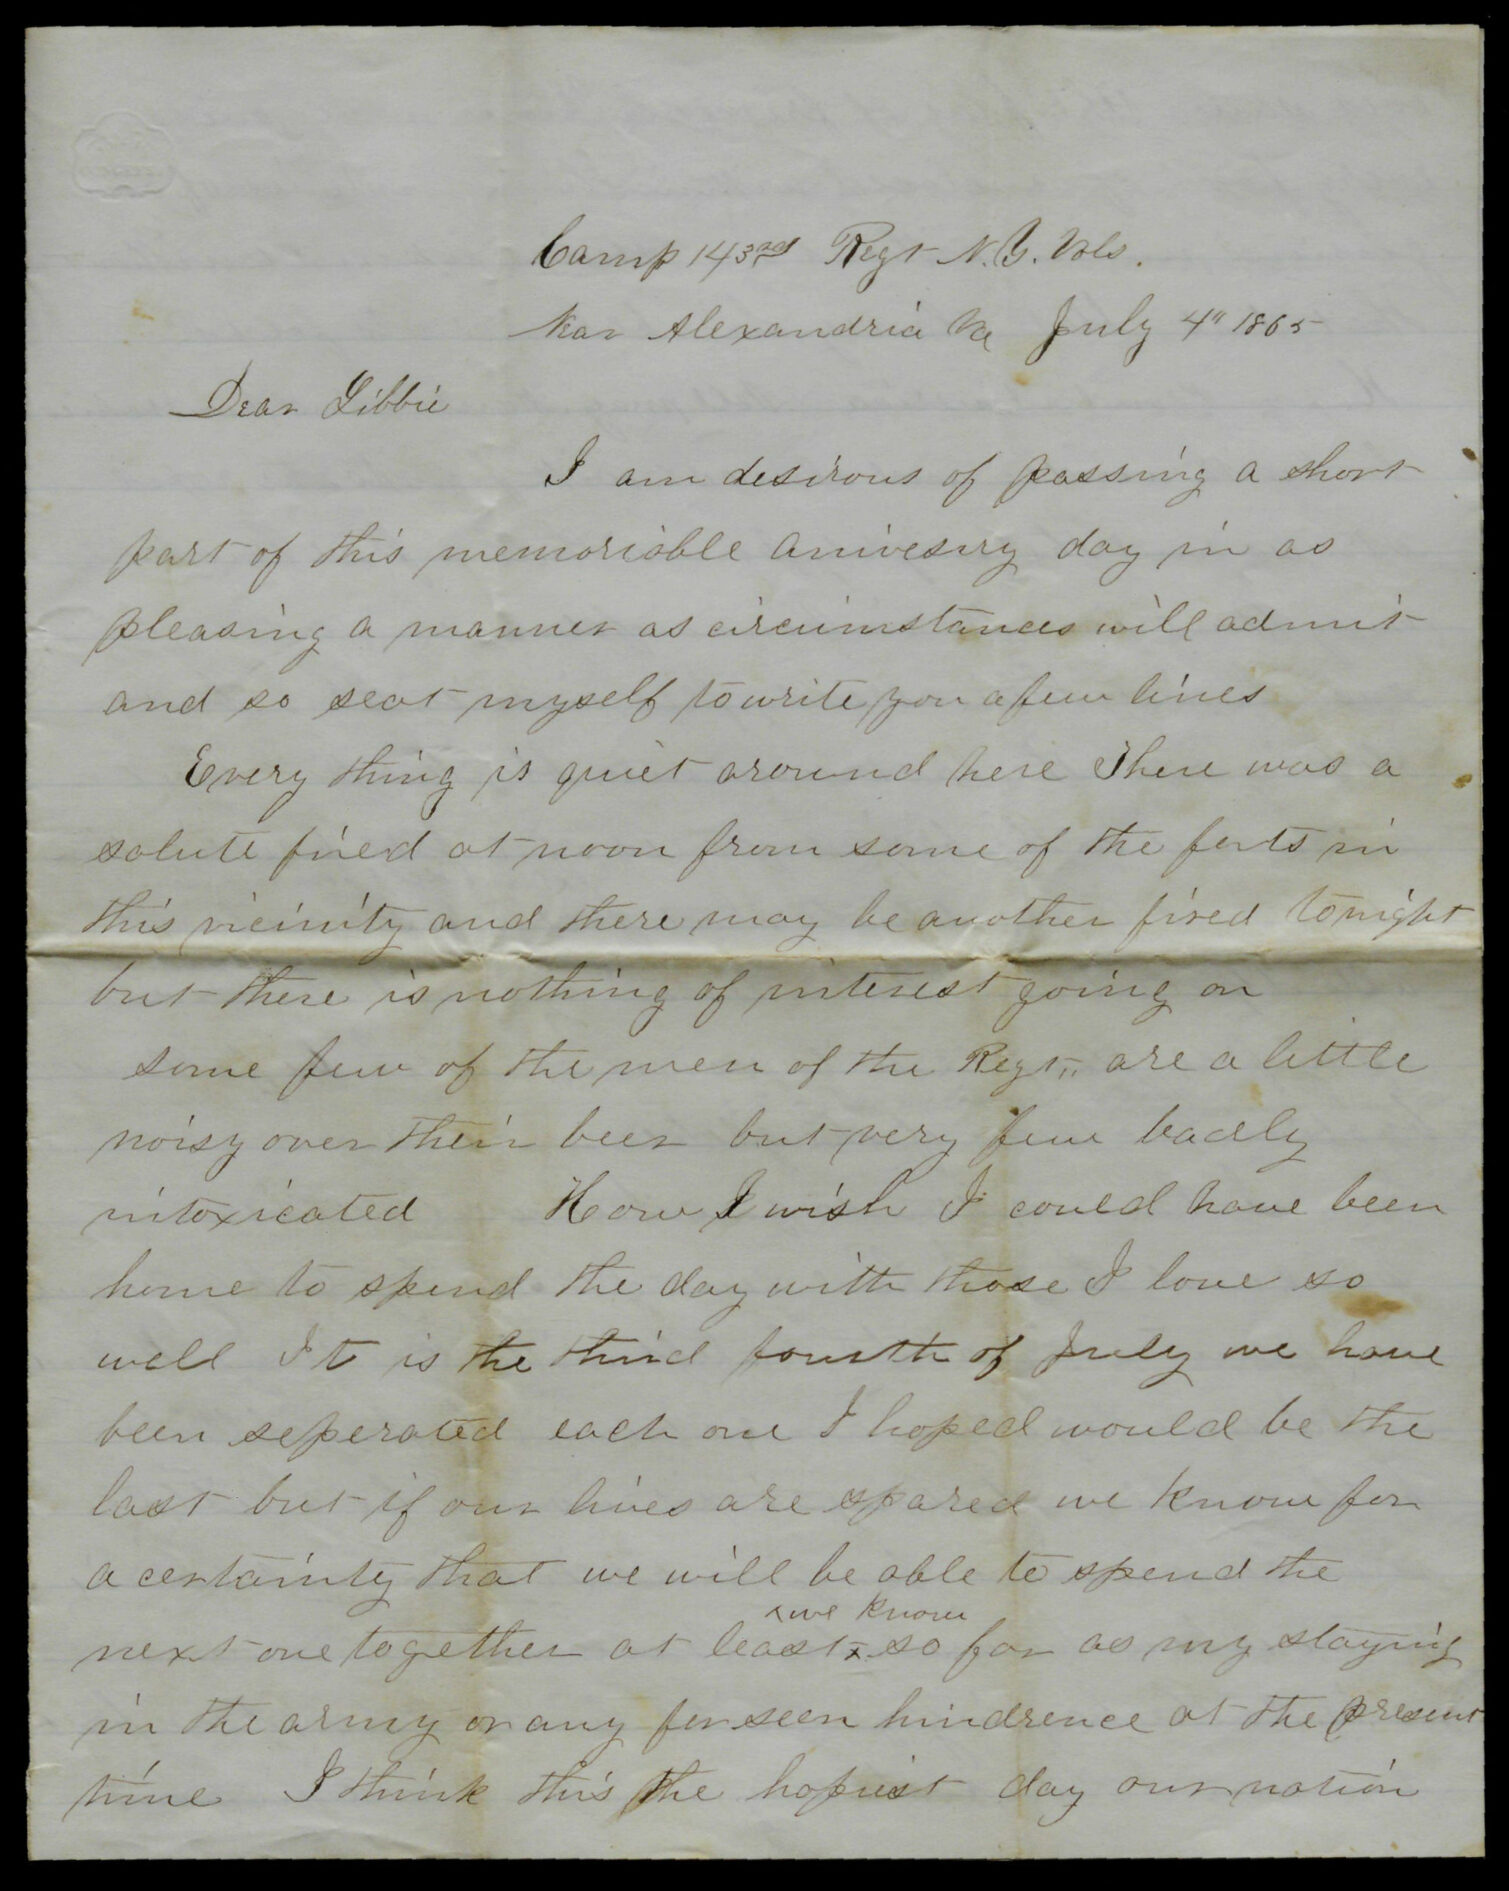 Camp 143rd Regt N.Y. Vols.
Near Alexandria Va July 4" 1865
Dear Libbie
I am desirous of passing a short
part of this memoriable anivesry day in as
pleasing a manner as circumstances will admit
and so seat myself to write you a few lines
Every thing is quiet around here There was a
salute fired at noon from some of the forts in
this vicinity and there may be another fired tonight
but there is nothing of interest going on
some few of the men of the Regt,, are a little
noisy over their beer but very few badly
intoxicated How I wish I could have been
home to spend the day with those I love so
well It is the third fourth of July we have
been seperated each one I hoped would be the
last but if our lives are spared we know for
a certainty that we will be able to spend the
^we know
next one together at least so far as my staying
in the army or any forseen hindrence at the present
time I think this the hapiest day our nation